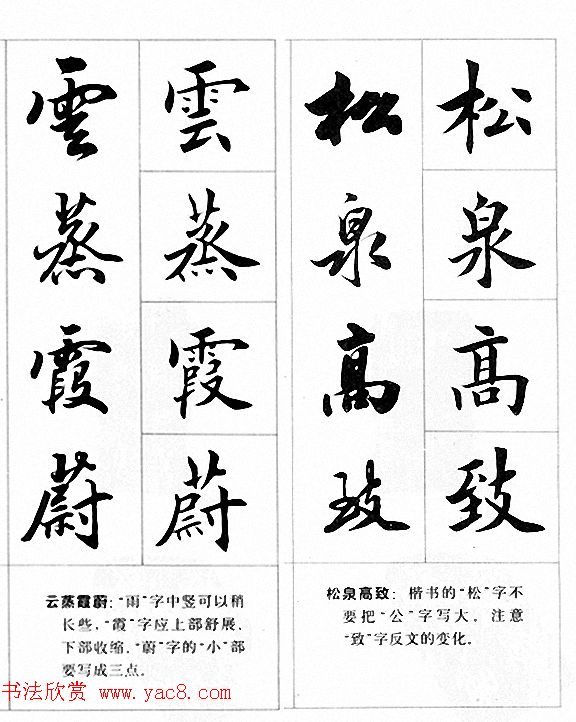 松泉高致
松泉高致
雲蒸霞蔚
雲蒸霞蔚
松泉高致：楷书的“松”字不
要把“公”字写大。注意
“致”字反文的变化。
云蒸霞蔚：“雨”字中竖可以稍
长些，“霞”字应上部舒展，
下部收缩，“蔚”字的“小”部
要写成三点。
书法欣赏 www.yac8.com